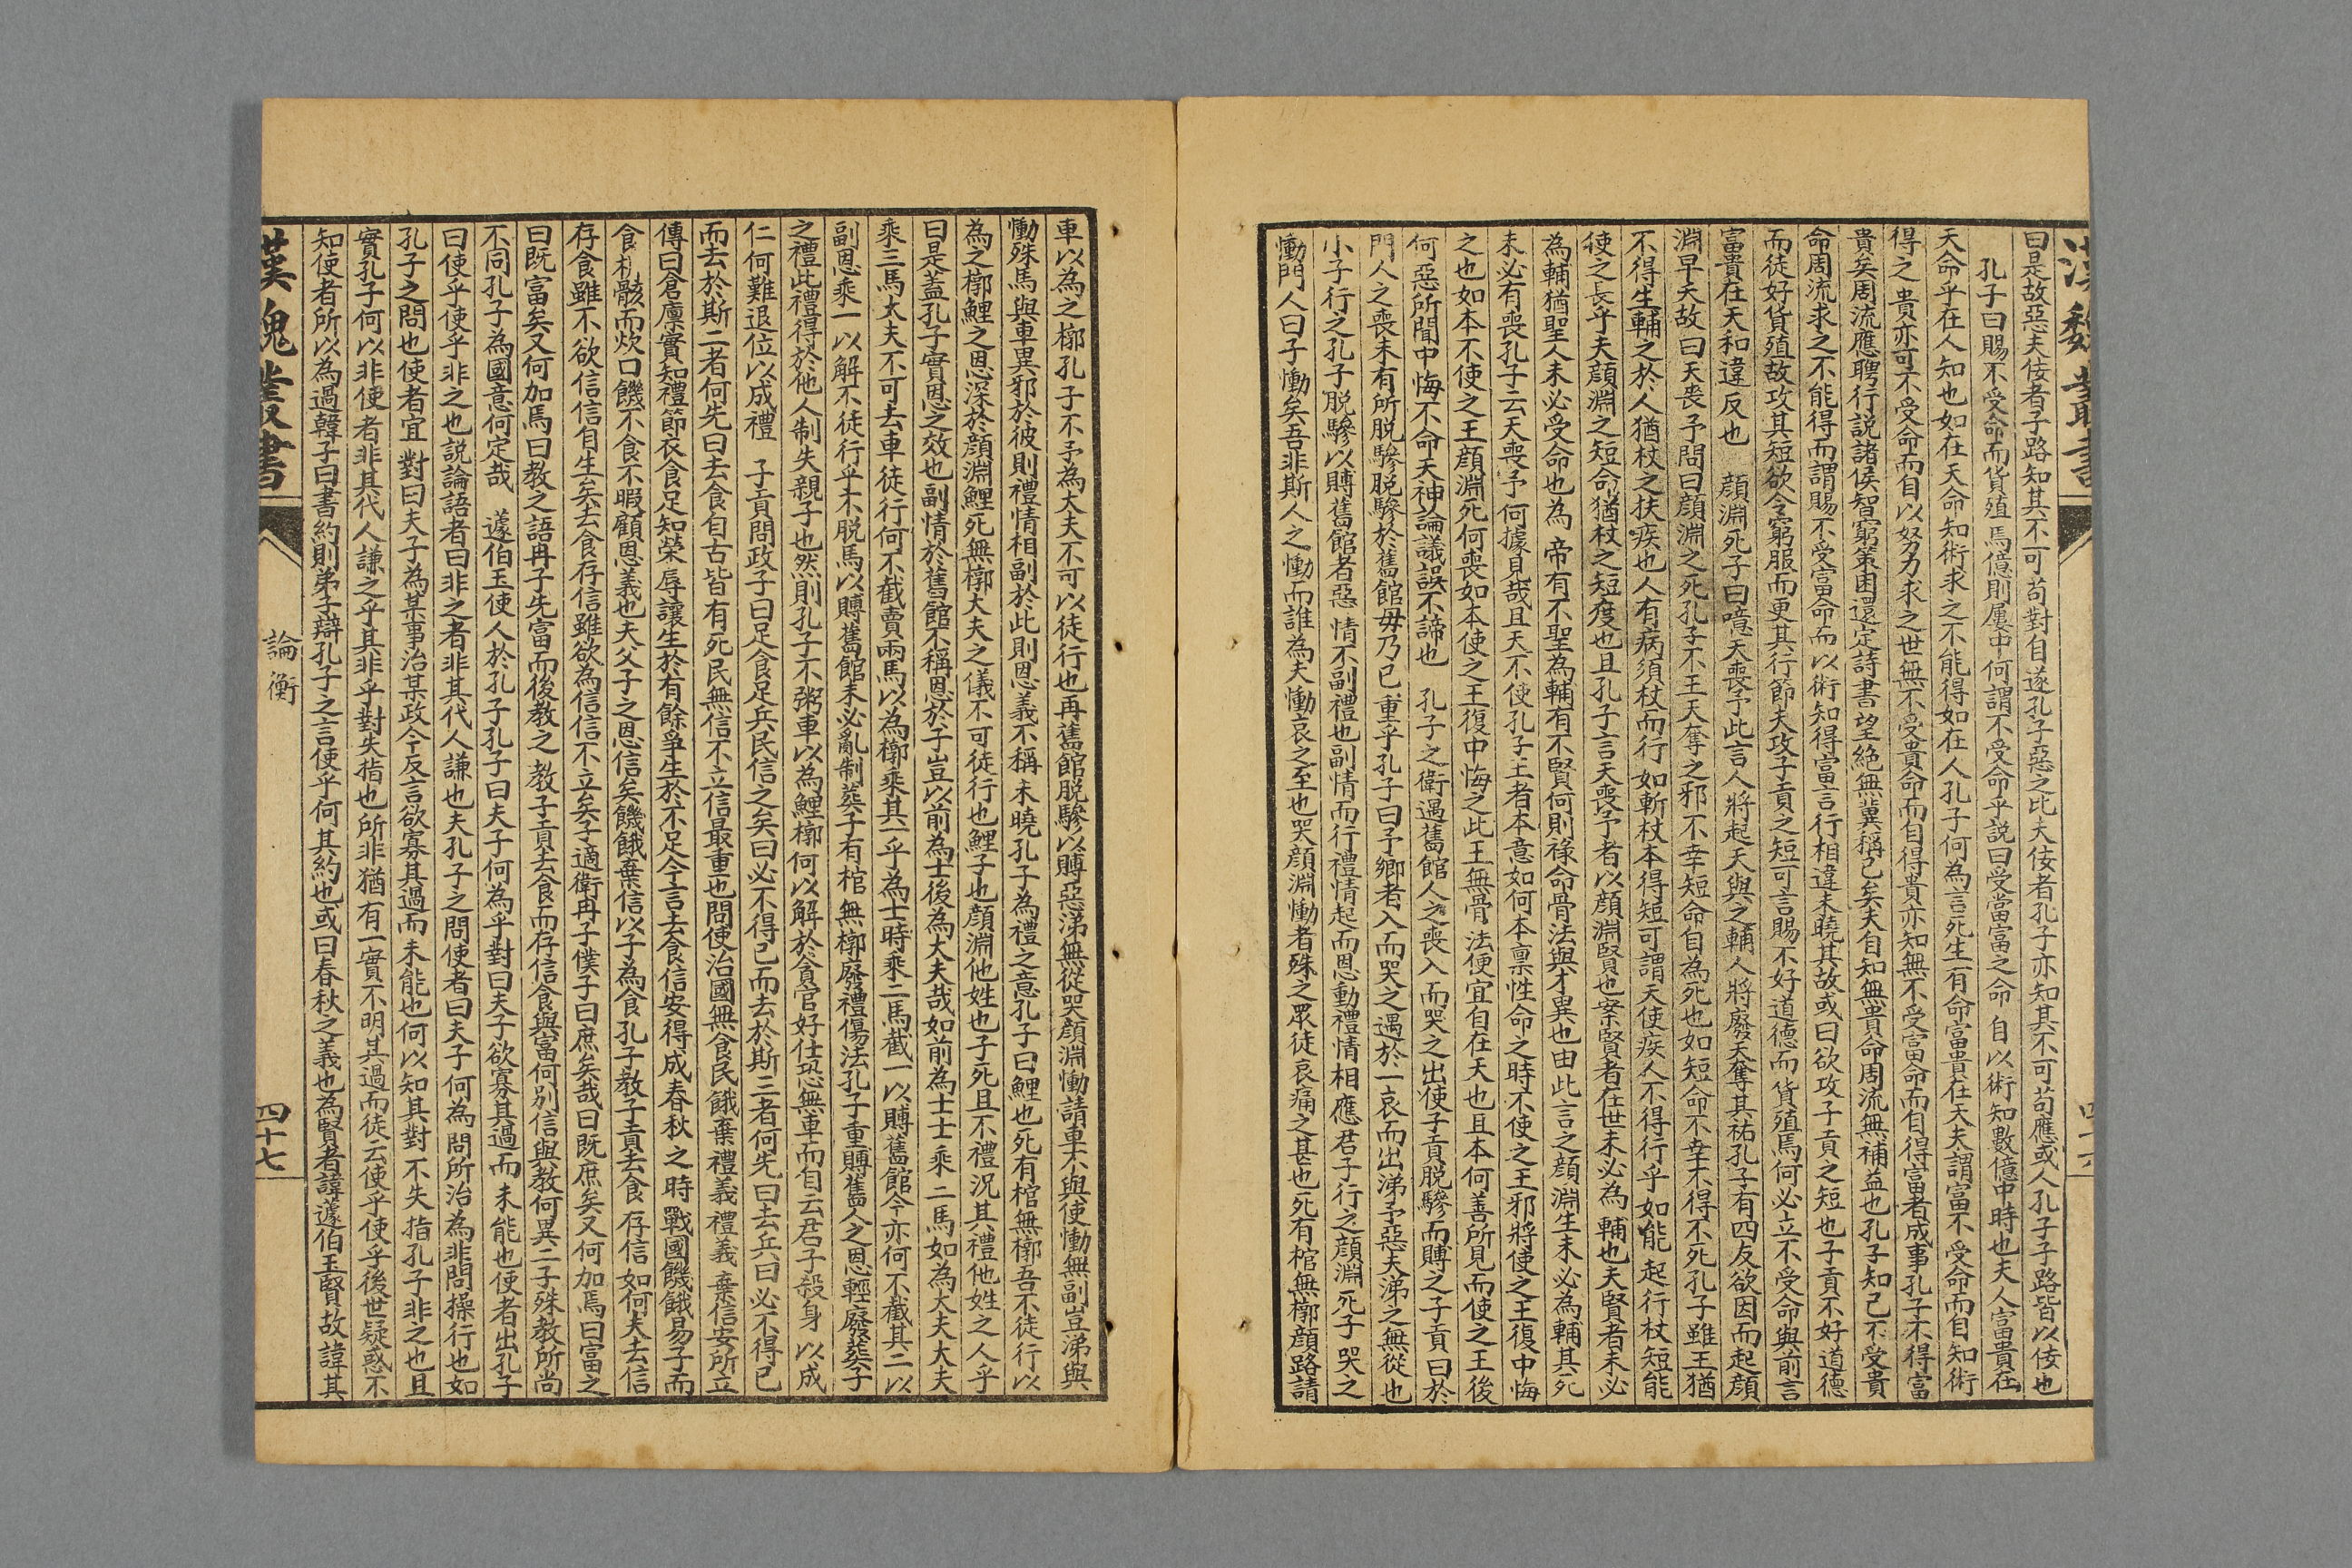 漢魏叢書
曰是故惡夫佞者子路知其不可苟對自遂孔子惡之比夫佞者孔子亦知其不可苟應或人孔子子路皆以佞也
孔子曰賜不受命而貨殖焉億則屢中何謂不受命乎說曰受當富之命自以術知數億中時也夫人富貴在
天命乎在人知也如在天命知術求之不能得如在人孔子何為言死生有命富貴在天夫謂富不受命而自知術
得之貴亦可不受命而自以努力求之世無不受貴命而自得貴亦知無不受富命而自得富者成事孔子不得富
貴矣周流應聘行說諸侯智窮策困還定詩書望絕無冀稱已矣夫自知無貴命周流無補益也孔子知己不受貴
命周流求之不能得而謂賜不受富命而以術知得富言行相違未曉其故或曰欲攻子貢之短也子貢不好道德
而徒好貨殖故攻其短欲令窮服而更其行節夫攻子貢之短可言賜不好道德而貨殖焉何必立不受命與前言
富貴在天和違反也　顏淵死子曰噫天喪予此言人將起天與之輔人將廢天奪其祐孔子有四友欲因而起顏
淵早夭故曰天喪予問曰顏淵之死孔子不王天奪之邪不幸短命自為死也如短命不幸不得不死孔子雖王猶
不得生輔之於人猶杖之扶疾也人有病須杖而行如斬杖本得短可謂天使疾人不得行乎如能起行杖短能
使之長乎夫顏淵之短命猶杖之短度也且孔子言天喪予者以顏淵賢也案賢者在世未必為輔也夫賢者未必
為輔猶聖人未必受命也為帝有不聖為輔有不賢何則祿命骨法與才異也由此言之顏淵生未必為輔其死
未必有喪孔子云天喪予何據見哉且天不使孔子王者本意如何本稟性命之時不使之王邪將使之王復中悔
之也如本不使之王顏淵死何喪如本使之王復中悔之此王無骨法便宜自在天也且本何善所見而使之王後
何惡所聞中悔不命天神論議誤不諦也　孔子之衛遇舊館人之喪入而哭之出使子貢脫驂而賻之子貢曰於
門人之喪未有所脫驂脫驂於舊館毋乃已重乎孔子曰予鄉者入而哭之遇於一哀而出涕予惡夫涕之無從也
小子行之孔子脫驂以賻舊館者惡情不副禮也副情而行禮情起而恩動禮情相應君子行之顏淵死子哭之
慟門人曰子慟矣吾非斯人之慟而誰為夫慟哀之至也哭顏淵慟者殊之眾徒哀痛之甚也死有棺無槨顏路請
車以為之槨孔子不予為大夫不可以徒行也再舊館脫驂以賻惡涕無從哭顏淵慟請車不與使慟無副豈涕與
慟殊馬與車異邪於彼則禮情相副於此則恩義不稱未曉孔子為禮之意孔子曰鯉也死有棺無槨吾不徒行以
為之槨鯉之恩深於顏淵鯉死無槨大夫之儀不可徒行也鯉子也顏淵他姓也子死且不禮況其禮他姓之人乎
曰是蓋孔子實恩之效也副情於舊館不稱恩於子豈以前為士後為大夫哉如前為士士乘二馬如為大夫大夫
乘三馬大夫不可去車徒行何不截賣兩馬以為槨乘其一乎為士時乘二馬截一以賻舊館今亦何不截其二以
副恩乘一以解不徒行乎不脫馬以賻舊館未必亂制葬子有棺無槨廢禮傷法孔子重賻舊人之恩輕廢葬子
之禮此禮得於他人制失親子也然則孔子不粥車以為鯉槨何以解於貪官好仕恐無車而自云君子殺身以成
仁何難退位以成禮　子貢問政子曰足食足兵民信之矣曰必不得已而去於斯三者何先曰去兵曰必不得已
而去於斯二者何先曰去食自古皆有死民無信不立信最重也問使治國無食民餓棄禮義禮義棄信安所立
傳曰倉廩實知禮節衣食足知榮辱讓生於有餘爭生於不足今言去食信安得成春秋之時戰國饑餓易子而
食析骸而炊口饑不食不暇顧恩義也夫父子之恩信矣饑餓棄信以子為食孔子教子貢去食存信如何夫去信
存食雖不欲信信自生矣去食存信雖欲為信信不立矣子適衛冉子僕子曰庶矣哉曰既庶矣又何加焉曰富之
曰既富矣又何加焉曰教之語冉子先富而後教之教子貢去食而存信食與富何別信與教何異二子殊教所尚
不同孔子為國意何定哉　蘧伯玉使人於孔子孔子曰夫子何為乎對曰夫子欲寡其過而未能也使者出孔子
曰使乎使乎非之也說論語者曰非之者非其代人謙也夫孔子之問使者曰夫子何為問所治為非問操行也如
孔子之問也使者宜對曰夫子為某事治某政今反言欲寡其過而未能也何以知其對不失指孔子非之也且
實孔子何以非使者非其代人謙之乎其非乎對失指也所非猶有一實不明其過而徒云使乎使乎後世疑惑不
知使者所以為過韓子曰書約則弟子辯孔子之言使乎何其約也或曰春秋之義也為賢者諱蘧伯玉賢故諱其
漢魏叢書
論衡
四十七